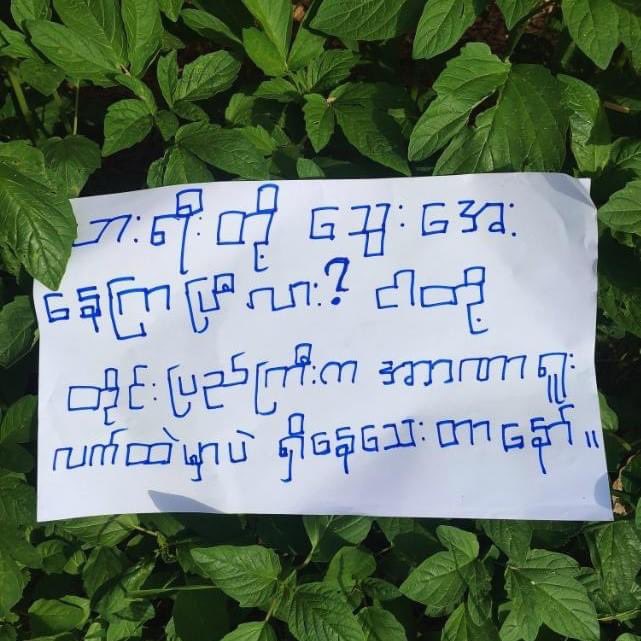 ဘားရီးတို့ သွေးအေး
နေကြပြီလား? ငါတို့
တိုင်းပြည်ကြီးက အာဏာရှူး
လက်ထဲမှာပဲ ရှိနေသေးတာနော်။